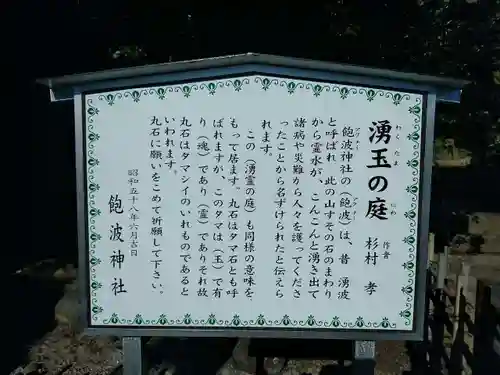 湧玉の庭
わく たま
にわ
作者
杉村 孝
飽波神社の(飽波)は、昔 湧波
アクナミ
アクナミ
と呼ばれ 此の山すその石のまわり
から霊水が、こんこんと湧き出て
諸病や災難から人々を護ってくださ
ったことから名ずけられたと伝えら
れます。
この(湧霊の庭)も同様の意味を
もって居ます。丸石はタマ石とも呼
ばれますが、このタマは(玉)で有
り(魂)であり(霊)でありそれ故
丸石はタマシイのいれものであると
いわれます。
丸石に願いをこめて祈願して下さい。
昭和五十八年六月吉日
飽波神社